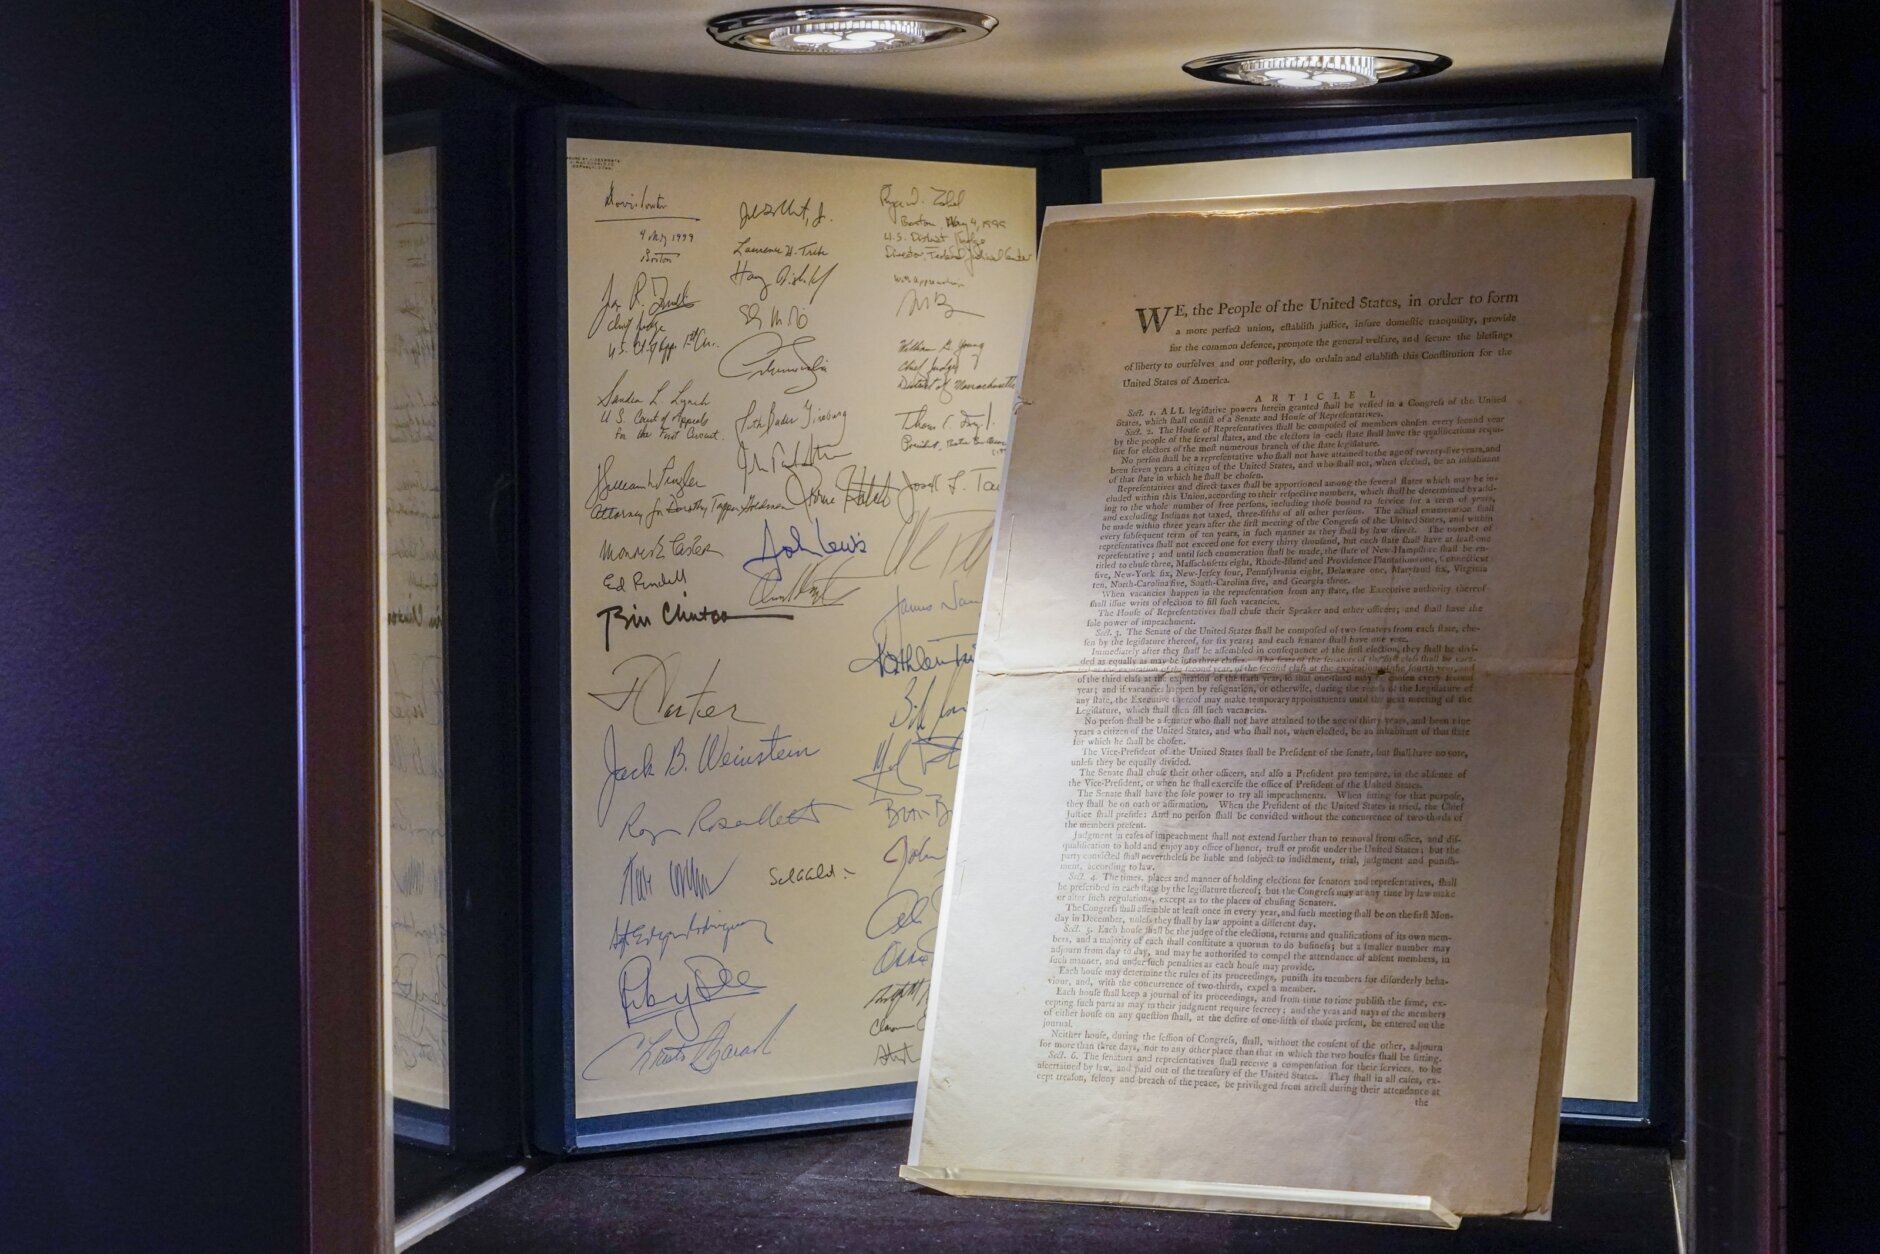 4 May 1999
Boston
Chief Judge
Sandra L. Lynch
U.S. Court of Appeals
for the First Circuit.
Attorney for Dorothy Tapper Goldman
Ed Rendell
Bill Clinton
Jack B. Weinstein
Laurence H. Tribe
Ruth Bader Ginsburg
John Lewis
Boston, May 4, 1999
U.S. District Judge
Director, Federal Judicial Center
with appreciation
William G. Young
Chief Judge
District of Massachusetts
WE, the People of the United States, in order to form
a more perfect union, eſtabliſh juſtice, inſure domeſtic tranquility, provide
for the common defence, promote the general welfare, and ſecure the bleſſings
of liberty to ourſelves and our poſterity, do ordain and eſtabliſh this Conſtitution for the
United States of America.
ARTICLE I.
Sect. 1. ALL legiſlative powers herein granted ſhall be veſted in a Congreſs of the United
States, which ſhall conſiſt of a Senate and Houſe of Repreſentatives.
Sect. 2. The Houſe of Repreſentatives ſhall be compoſed of members choſen every ſecond year
by the people of the ſeveral ſtates, and the electors in each ſtate ſhall have the qualifications requi-
ſite for electors of the moſt numerous branch of the ſtate legiſlature.
No perſon ſhall be a repreſentative who ſhall not have attained to the age of twenty-five years, and
been ſeven years a citizen of the United States, and who ſhall not, when elected, be an inhabitant
of that ſtate in which he ſhall be choſen.
Repreſentatives and direct taxes ſhall be apportioned among the ſeveral ſtates which may be in-
cluded within this Union, according to their reſpective numbers, which ſhall be determined by add-
ing to the whole number of free perſons, including thoſe bound to ſervice for a term of years,
and excluding Indians not taxed, three-fifths of all other perſons. The actual enumeration ſhall
be made within three years after the firſt meeting of the Congreſs of the United States, and within
every ſubſequent term of ten years, in ſuch manner as they ſhall by law direct. The number of
repreſentatives ſhall not exceed one for every thirty thouſand, but each ſtate ſhall have at leaſt one
repreſentative; and until ſuch enumeration ſhall be made, the ſtate of New-Hampſhire ſhall be en-
titled to chuſe three, Maſſachuſetts eight, Rhode-Iſland and Providence Plantations one, Connecticut
five, New-York ſix, New-Jerſey four, Pennſylvania eight, Delaware one, Maryland ſix, Virginia
ten, North-Carolina five, South-Carolina five, and Georgia three.
When vacancies happen in the repreſentation from any ſtate, the Executive authority thereof
ſhall iſſue writs of election to fill ſuch vacancies.
The Houſe of Repreſentatives ſhall chuſe their Speaker and other officers; and ſhall have the
ſole power of impeachment.
Sect. 3. The Senate of the United States ſhall be compoſed of two ſenators from each ſtate, cho-
ſen by the legiſlature thereof, for ſix years; and each ſenator ſhall have one vote.
Immediately after they ſhall be aſſembled in conſequence of the firſt election, they ſhall be divi-
ded as equally as may be into three claſſes. The ſeats of the ſenators of the firſt claſs ſhall be vaca-
ted at the expiration of the ſecond year, of the ſecond claſs at the expiration of the fourth year, and
of the third claſs at the expiration of the ſixth year, ſo that one-third may be choſen every ſecond
year; and if vacancies happen by reſignation, or otherwiſe, during the receſs of the Legiſlature of
any ſtate, the Executive thereof may make temporary appointments until the next meeting of the
Legiſlature, which ſhall then fill ſuch vacancies.
No perſon ſhall be a ſenator who ſhall not have attained to the age of thirty years, and been nine
years a citizen of the United States, and who ſhall not, when elected, be an inhabitant of that ſtate
for which he ſhall be choſen.
The Vice-Preſident of the United States ſhall be Preſident of the ſenate, but ſhall have no vote,
unleſs they be equally divided.
The Senate ſhall chuſe their other officers, and alſo a Preſident pro tempore, in the abſence of
the Vice-Preſident, or when he ſhall exerciſe the office of Preſident of the United States.
The Senate ſhall have the ſole power to try all impeachments. When ſitting for that purpoſe,
they ſhall be on oath or affirmation. When the Preſident of the United States is tried, the Chief
Juſtice ſhall preſide: And no perſon ſhall be convicted without the concurrence of two-thirds of
the members preſent.
Judgment in caſes of impeachment ſhall not extend further than to removal from office, and diſ-
qualification to hold and enjoy any office of honor, truſt or profit under the United States; but the
party convicted ſhall nevertheleſs be liable and ſubject to indictment, trial, judgment and puniſh-
ment, according to law.
Sect. 4. The times, places and manner of holding elections for ſenators and repreſentatives, ſhall
be preſcribed in each ſtate by the legiſlature thereof; but the Congreſs may at any time by law make
or alter ſuch regulations, except as to the places of chuſing Senators.
The Congreſs ſhall aſſemble at leaſt once in every year, and ſuch meeting ſhall be on the firſt Mon-
day in December, unleſs they ſhall by law appoint a different day.
Sect. 5. Each houſe ſhall be the judge of the elections, returns and qualifications of its own mem-
bers, and a majority of each ſhall conſtitute a quorum to do buſineſs; but a ſmaller number may
adjourn from day to day, and may be authoriſed to compel the attendance of abſent members, in
ſuch manner, and under ſuch penalties as each houſe may provide.
Each houſe may determine the rules of its proceedings, puniſh its members for diſorderly beha-
viour, and, with the concurrence of two-thirds, expel a member.
Each houſe ſhall keep a journal of its proceedings, and from time to time publiſh the ſame, ex-
cepting ſuch parts as may in their judgment require ſecrecy; and the yeas and nays of the members
of either houſe on any queſtion ſhall, at the deſire of one-fifth of thoſe preſent, be entered on the
journal.
Neither houſe, during the ſeſſion of Congreſs, ſhall, without the conſent of the other, adjourn
for more than three days, nor to any other place than that in which the two houſes ſhall be ſitting.
Sect. 6. The ſenators and repreſentatives ſhall receive a compenſation for their ſervices, to be
aſcertained by law, and paid out of the treaſury of the United States. They ſhall in all caſes, ex-
cept treaſon, felony and breach of the peace, be privileged from arreſt during their attendance at
the